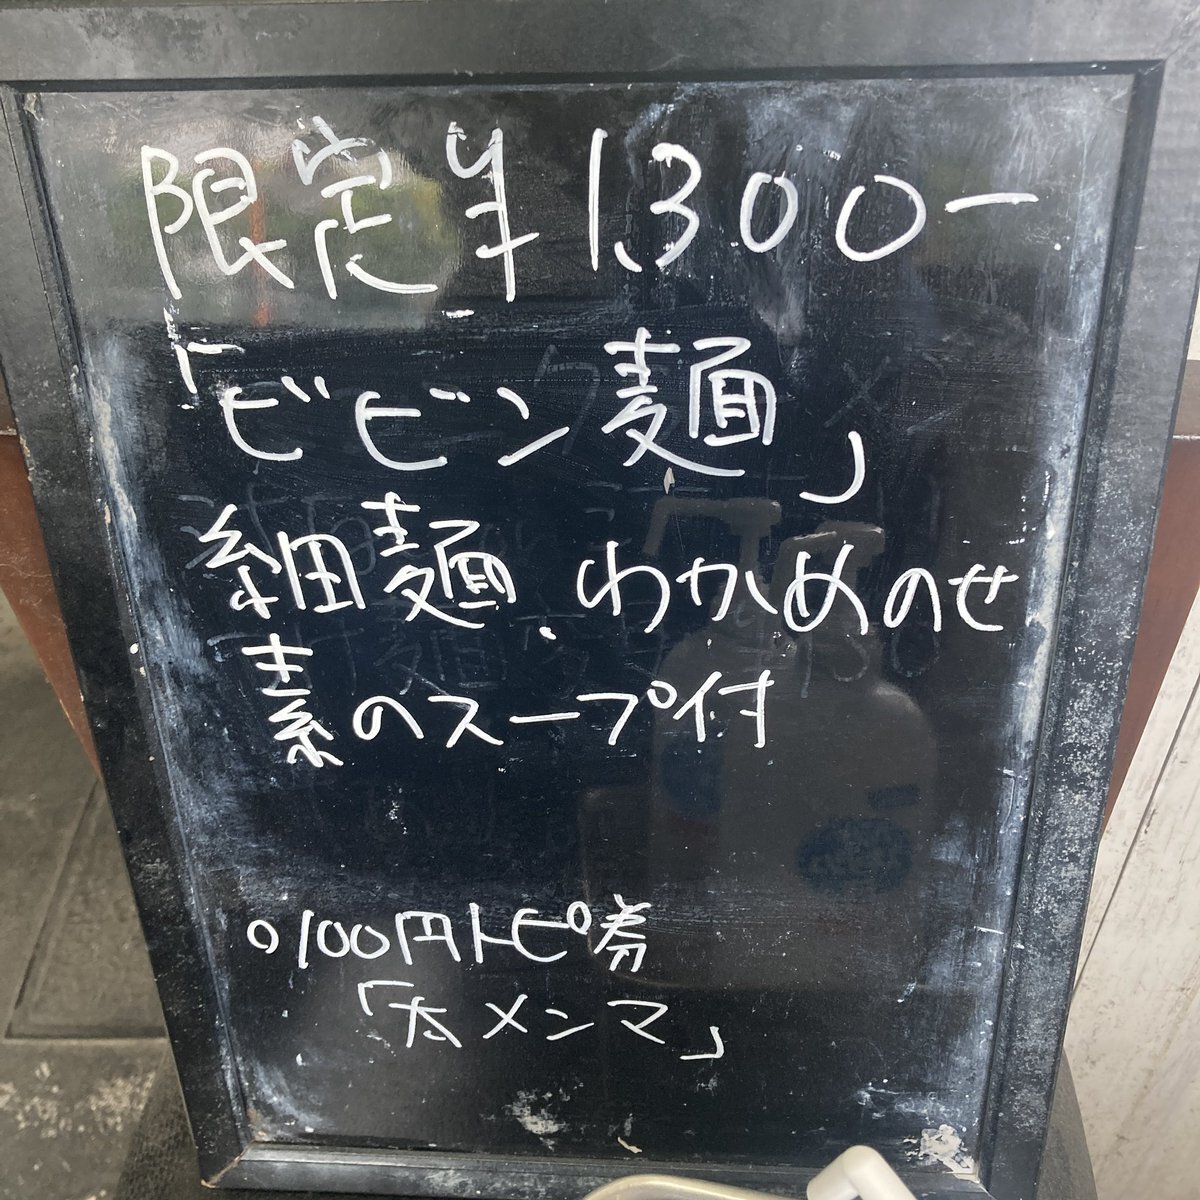 限定¥1,300ー
「ビビン麺」
細麺.わかめのせ
素のスープ付
○100円トピ券
「太メンマ」